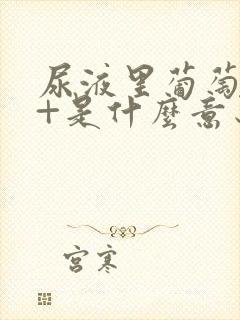 尿液里葡萄
+是什麼意
宮寒